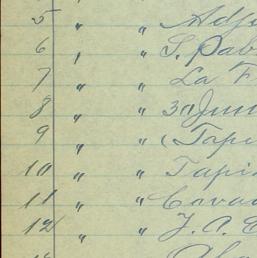 5 " " Adj
6 " " S. Pab
7 " " La F
8 " " 30 Jun
9 " " (Tapi
10 " " Tapi
11 " " Cava
12 " " J. A. E